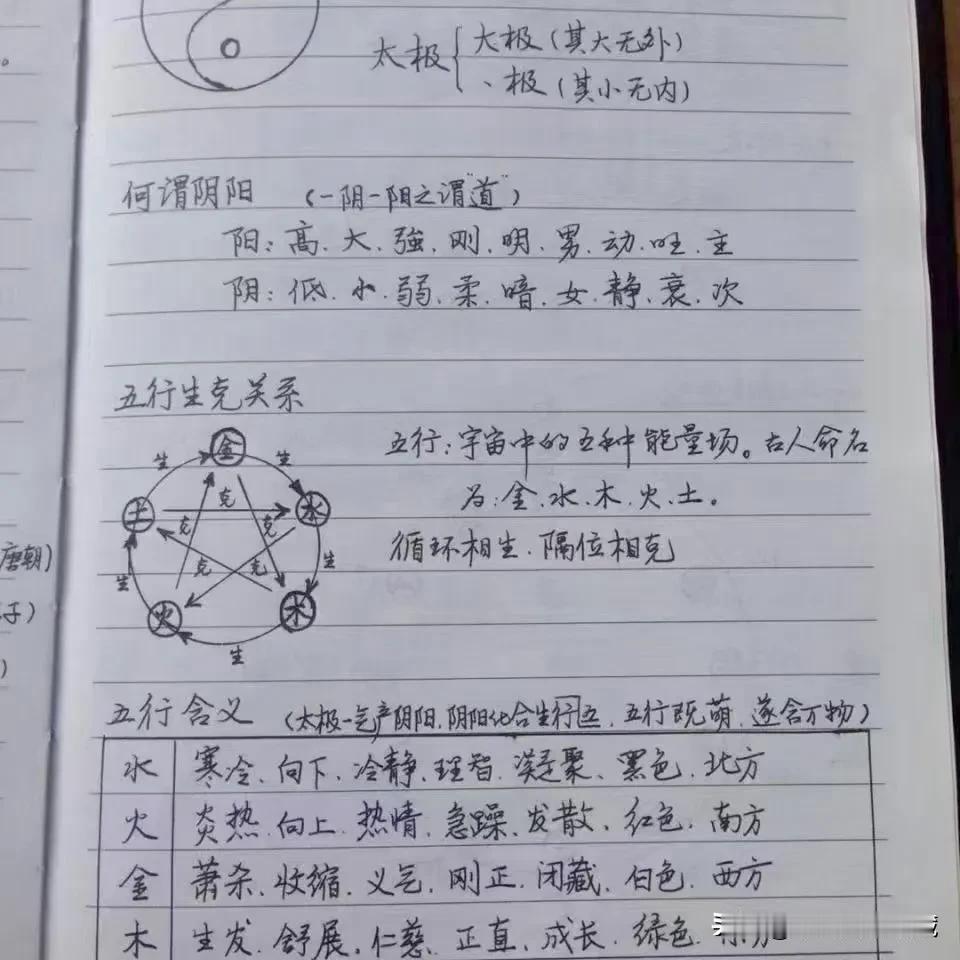 太极 { 大极（其大无外）
、极（其小无内）
何谓阴阳 （一阴一阳之谓"道"）
阳：高、大、強、刚、明、男、动、旺、主
阴：低、小、弱、柔、暗、女、静、衰、次
五行生克关系
金
生
生
土
克
水
克
克
生
生
克
克
火
木
生
五行：宇宙中的五种能量场。古人命名
为：金、水、木、火、土。
循环相生、隔位相克
唐朝）
子）
）
。
五行含义 （太极一气产阴阳、阴阳化合生行五、五行既萌、遂含万物）
水 寒冷、向下、冷静、理智、凝聚、黑色、北方
火 炎热、向上、热情、急躁、发散、红色、南方
金 萧杀、收缩、义气、刚正、闭藏、白色、西方
木 生发、舒展、仁慈、正直、成长、绿色